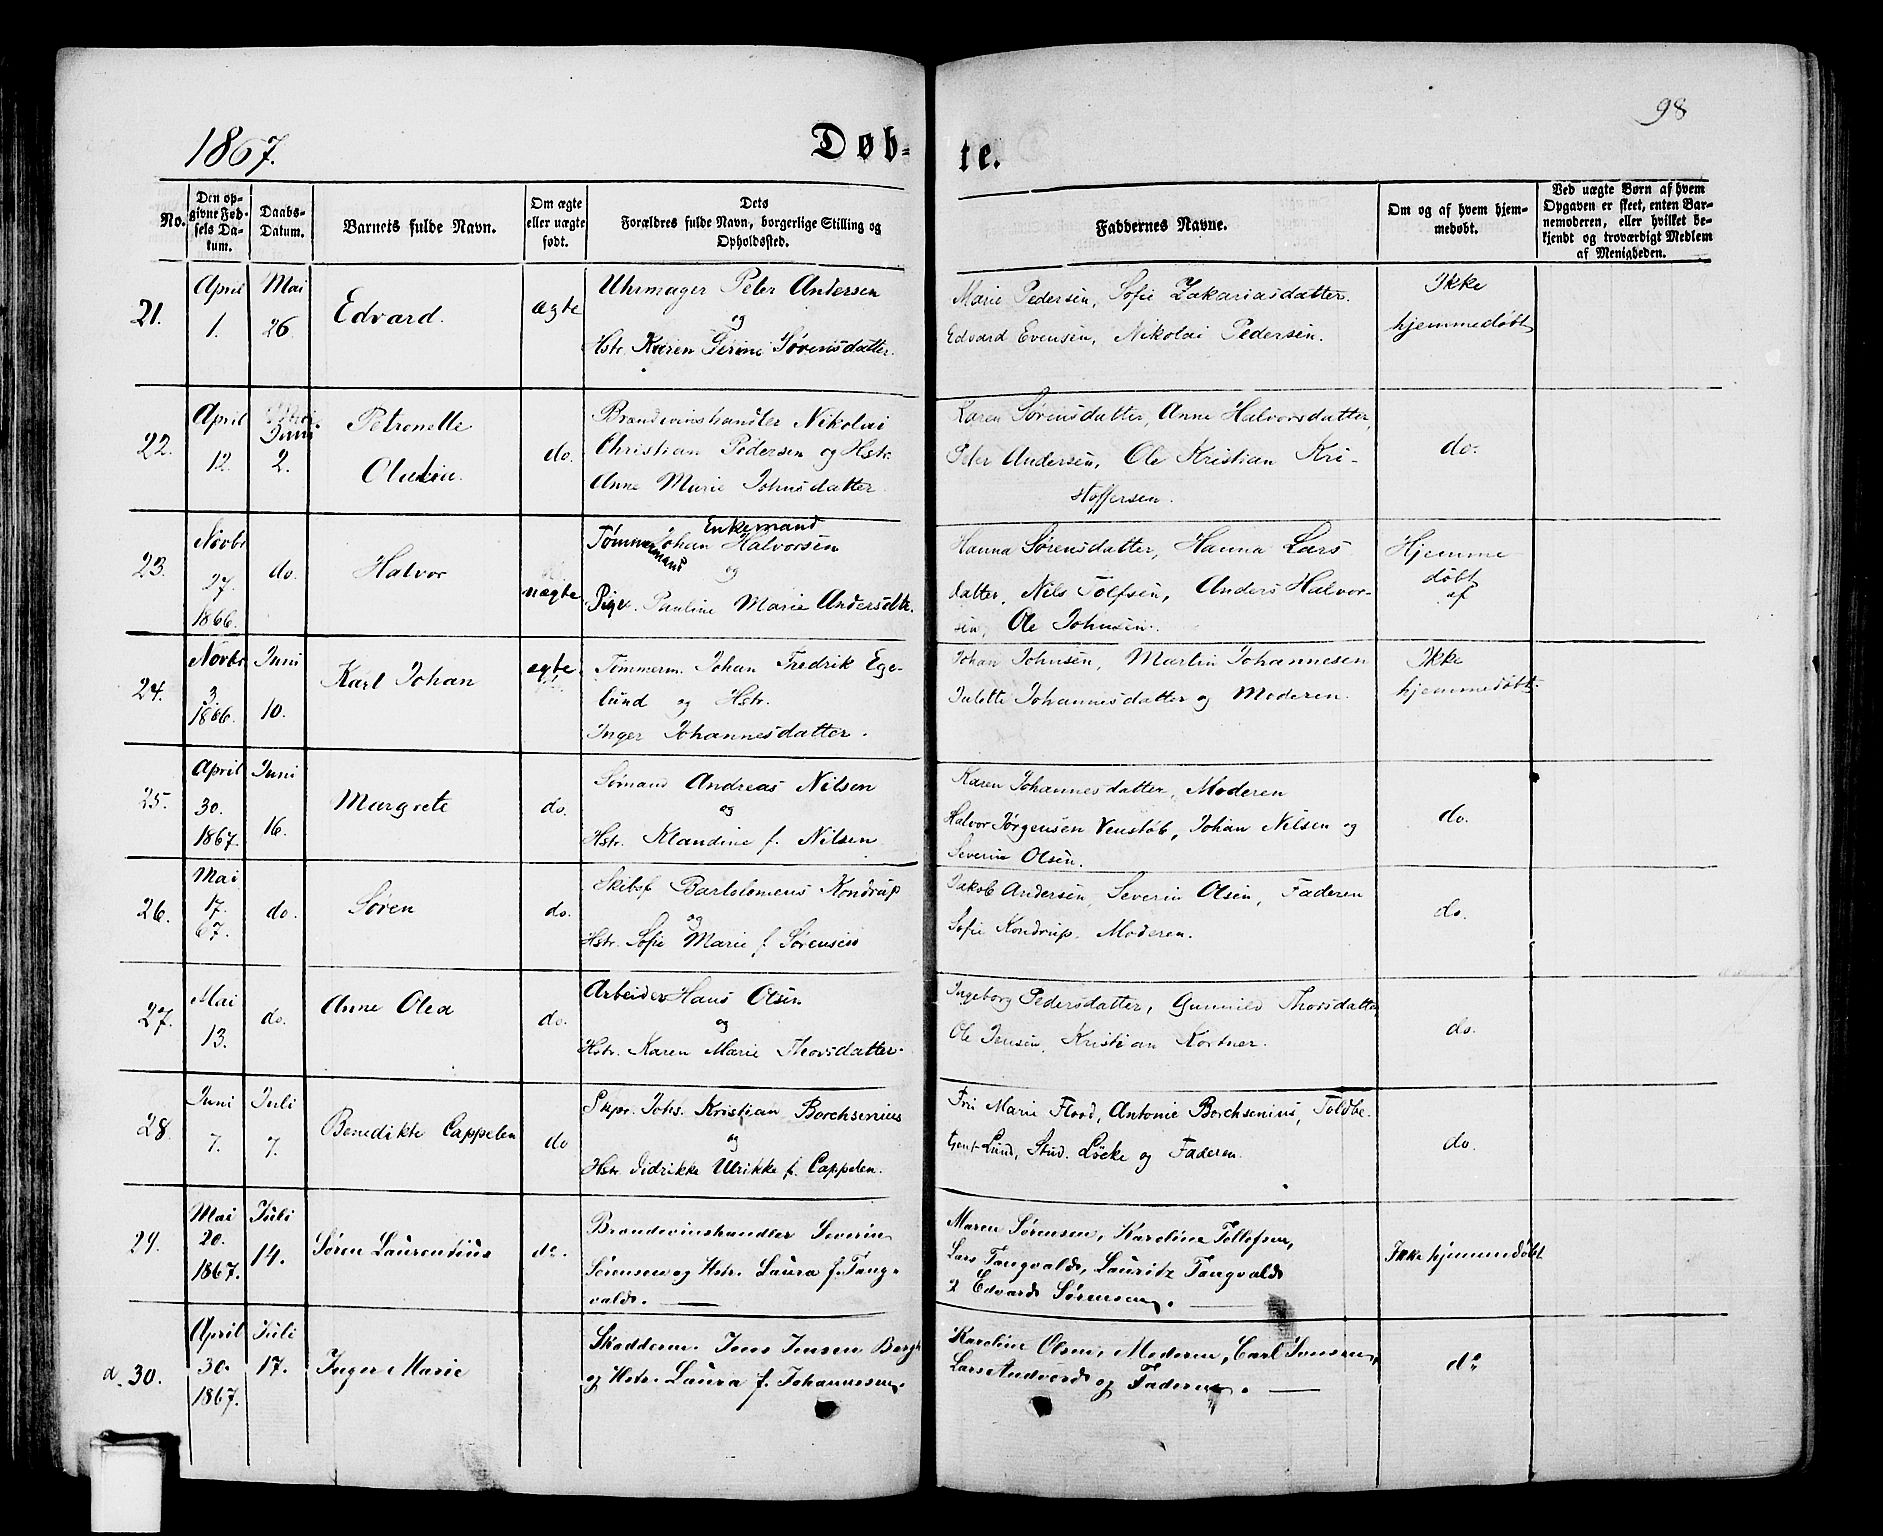 98
1867.
Døb-
te.
No.
Den opgivne Fødsels Datum.
Daabs-Datum.
Barnets fulde Navn.
Om ægte eller uægte født.
Dets Forældres fulde Navn, borgerlige Stilling og Opholdssted.
Faddernes Navne.
Om og af hvem hjemmedøbt.
Ved uægte Børn af hvem Opgaven er skeet, enten Barnemoderen, eller hvilket bekjendt og troværdigt Medlem af Menigheden.
21.
April
1.
Mai
26
Edvard.
ægte
Uhrmager Peter Andersen
og
Hstr. Karen Serine Sørensdatter.
Marie Pedersen, Sofie Zakariasdatter.
Edvard Evensen, Nikolai Pedersen.
Ikke
hjemmedøbt
22.
April
12.
Juni
2.
Petronelle
do.
Brændevinshandler Nikolai
Christian Pedersen og Hstr.
Anne Marie Johnsdatter.
Karen Sørensdatter, Anne Halvorsdatter,
Peter Andersen, Ole Kristian Kri-
stoffersen.
do.
23.
Novbr
27.
1866.
do.
Halvor
uægte
Enkemand
Tømmermand Johan Halvorsen
og
Pige. Pauline Marie Andersdtr.
Hanna Sørensdatter, Hanna Lars
datter, Nils Tolfsen, Anders Halvor-
sen, Ole Johnsen.
Hjemme
døbt
af
24.
Novbr
3.
1866.
Juni
10.
Karl Johan
ægte
Tømmerm. Johan Fredrik Ege-
lund og Hstr.
Inger Johannesdatter.
Johan Johnsen, Martin Johannesen
Julette Johannesdatter og Moderen.
Ikke
hjemmedøbt.
25.
April
30.
1867.
Juni
16.
Margrete
do.
Sømand Andreas Nilsen
og
Hstr. Klandine f. Nilsen
Karen Johannesdatter, Moderen
Halvor Jørgensen Venstøb, Johan Nilsen og
Severin Olsen.
do.
26.
Mai
17.
67.
do.
Søren
do.
Skibsf. Bartolomeus Kondrup
og
Hstr. Sofie Marie f. Sørensen
Jakob Andersen, Severin Olsen, Faderen
Sofie Kondrup. Moderen.
do.
27.
Mai
13.
do.
Anne Olea
do.
Arbeider Hans Olsen
og
Hstr. Karen Marie Thorsdatter.
Ingeborg Pedersdatter, Gunnild Thorsdatter,
Ole Jensen, Kristian Kortner.
do.
28.
Juni
7.
Juli
7.
Benedikte Cappelen
do
Skpr. Johs. Kristian Borchsenius
og
Hstr. Didrikke Ulrikke f. Cappelen.
Fru Marie Flood, Antonie Borchsenius, Toldbe-
tjent Lund, Stud. Løcke og Faderen.
do.
29.
Mai
20.
1867.
Juli
14.
Søren Laurentius
do.
Brændevinshandler Severin
Sørensen og Hstr. Laura f. Tang-
valds.
Maren Sørensen, Karoline Tollofsen,
Lars Tangvalds, Lauritz Tangvalds
& Edvards Sørensen.
Ikke hjemmedøbt
a. 30.
April
30.
1867.
Juli
17.
Inger Marie
Skadderm. Jens Jensen Bergh
og Hstr. Laura f. Johannesen.
Karoline Olsen, Moderen, Carl Jensen,
og Faderen.
do